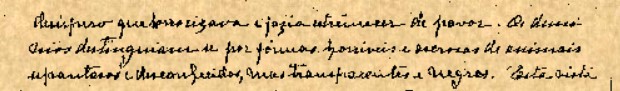 que horrorizava e fazia estremecer de pavor. Os demo
nios destinguiam se por fórmas horriveis e ascrosas de animais
espantosos e desconhecidos, mas transparentes e negros. Esta visão